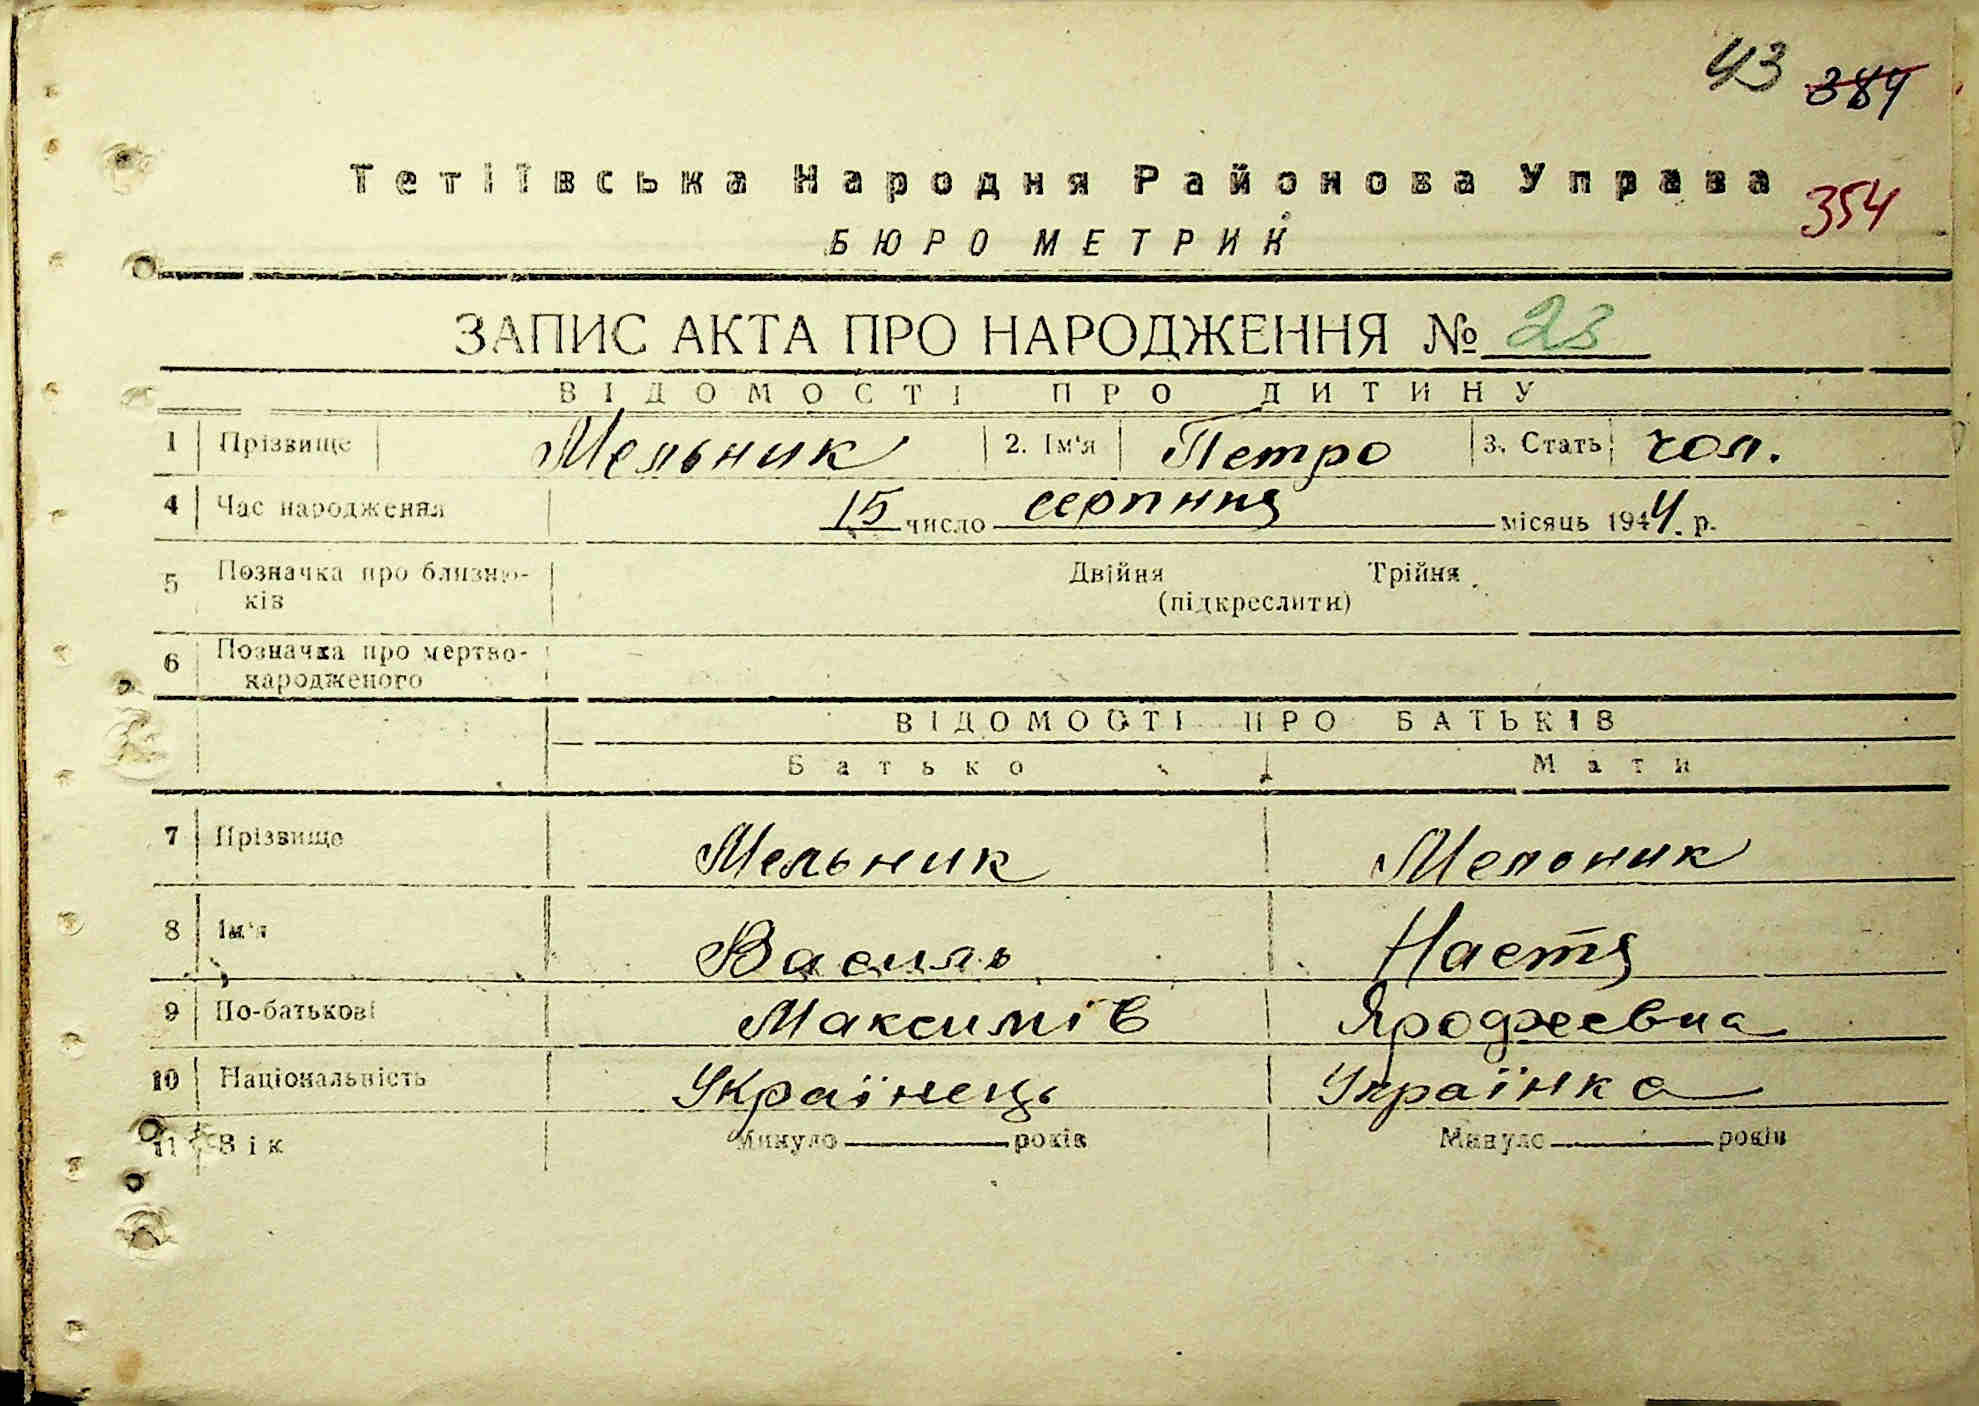 43 384
Тетіївська Народня Районова Управа
354
БЮРО МЕТРИК
ЗАПИС АКТА ПРО НАРОДЖЕННЯ № 23
ВІДОМОСТІ ПРО ДИТИНУ
1 Прізвище Мельник 2. Ім'я Петро 3. Стать чол.
4 Час народження 15 число серпння місяць 1944. р.
5 Позначка про близню- Двійня Трійня
ків (підкреслити)
6 Позначка про мертво-
народженого
ВІДОМОСТІ ПРО БАТЬКІВ
Батько Мати
7 Прізвище Мельник Мельник
8 Ім'я Василь Настя
9 По-батькові Максимів Ярофеевна
10 Національність Українець Українка
11 Вік Минуло років Минуло років